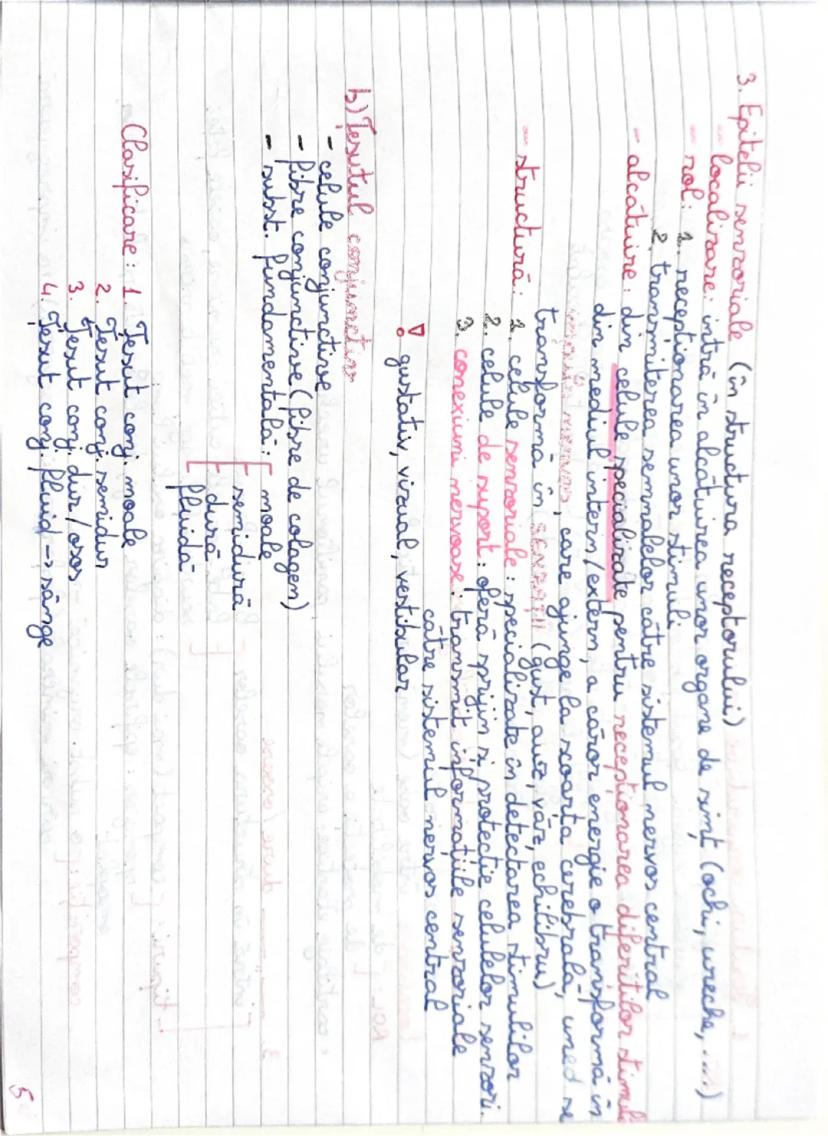 3. Epitelii senzoriale (în structura receptorului)
- localizare: intră în alcătuirea unor organe de simț (ochi, ureche, ...)
- rol: 1. recepționarea unor stimuli
2. transmiterea semnalelor către sistemul nervos central
- alcătuire: din celule specializate pentru recepționarea diferitilor stimuli
din mediul intern/extern, a căror energie o transformă în
, care ajunge la scoarța cerebrală, uned se
transformă în senzații (gust, auz, văz, echilibru)
- structură: 1. celule senzoriale: specializate în detectarea stimulilor
2. celule de suport: oferă sprijin si protectie celulelor senzori.
3. conexiuni nervoase: transmit informatiile senzoriale
către sistemul nervos central
! gustativ, vizual, vestibular
b) Țesutul conjunctiv
- celule conjunctive
- fibre conjunctive (fibre de colagen)
- subst. fundamentală: moale
semidură
dură
fluidă
Clasificare: 1. Țesut conj. moale
2. Țesut conj. semidur
3. Țesut conj. dur/osos
4. Țesut conj. fluid → sânge
5